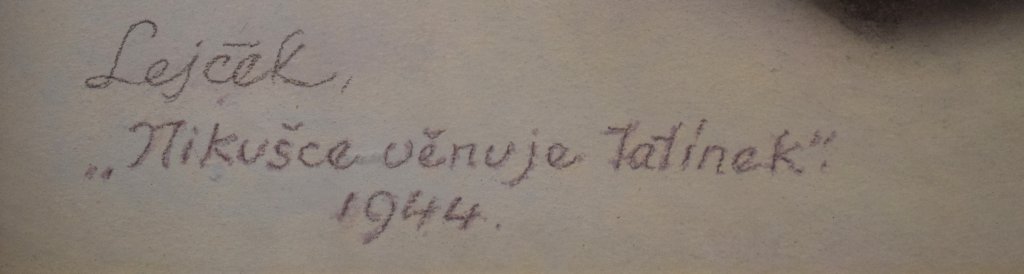 Lejček,
„Nikušce věnuje Tatínek“.
1944.